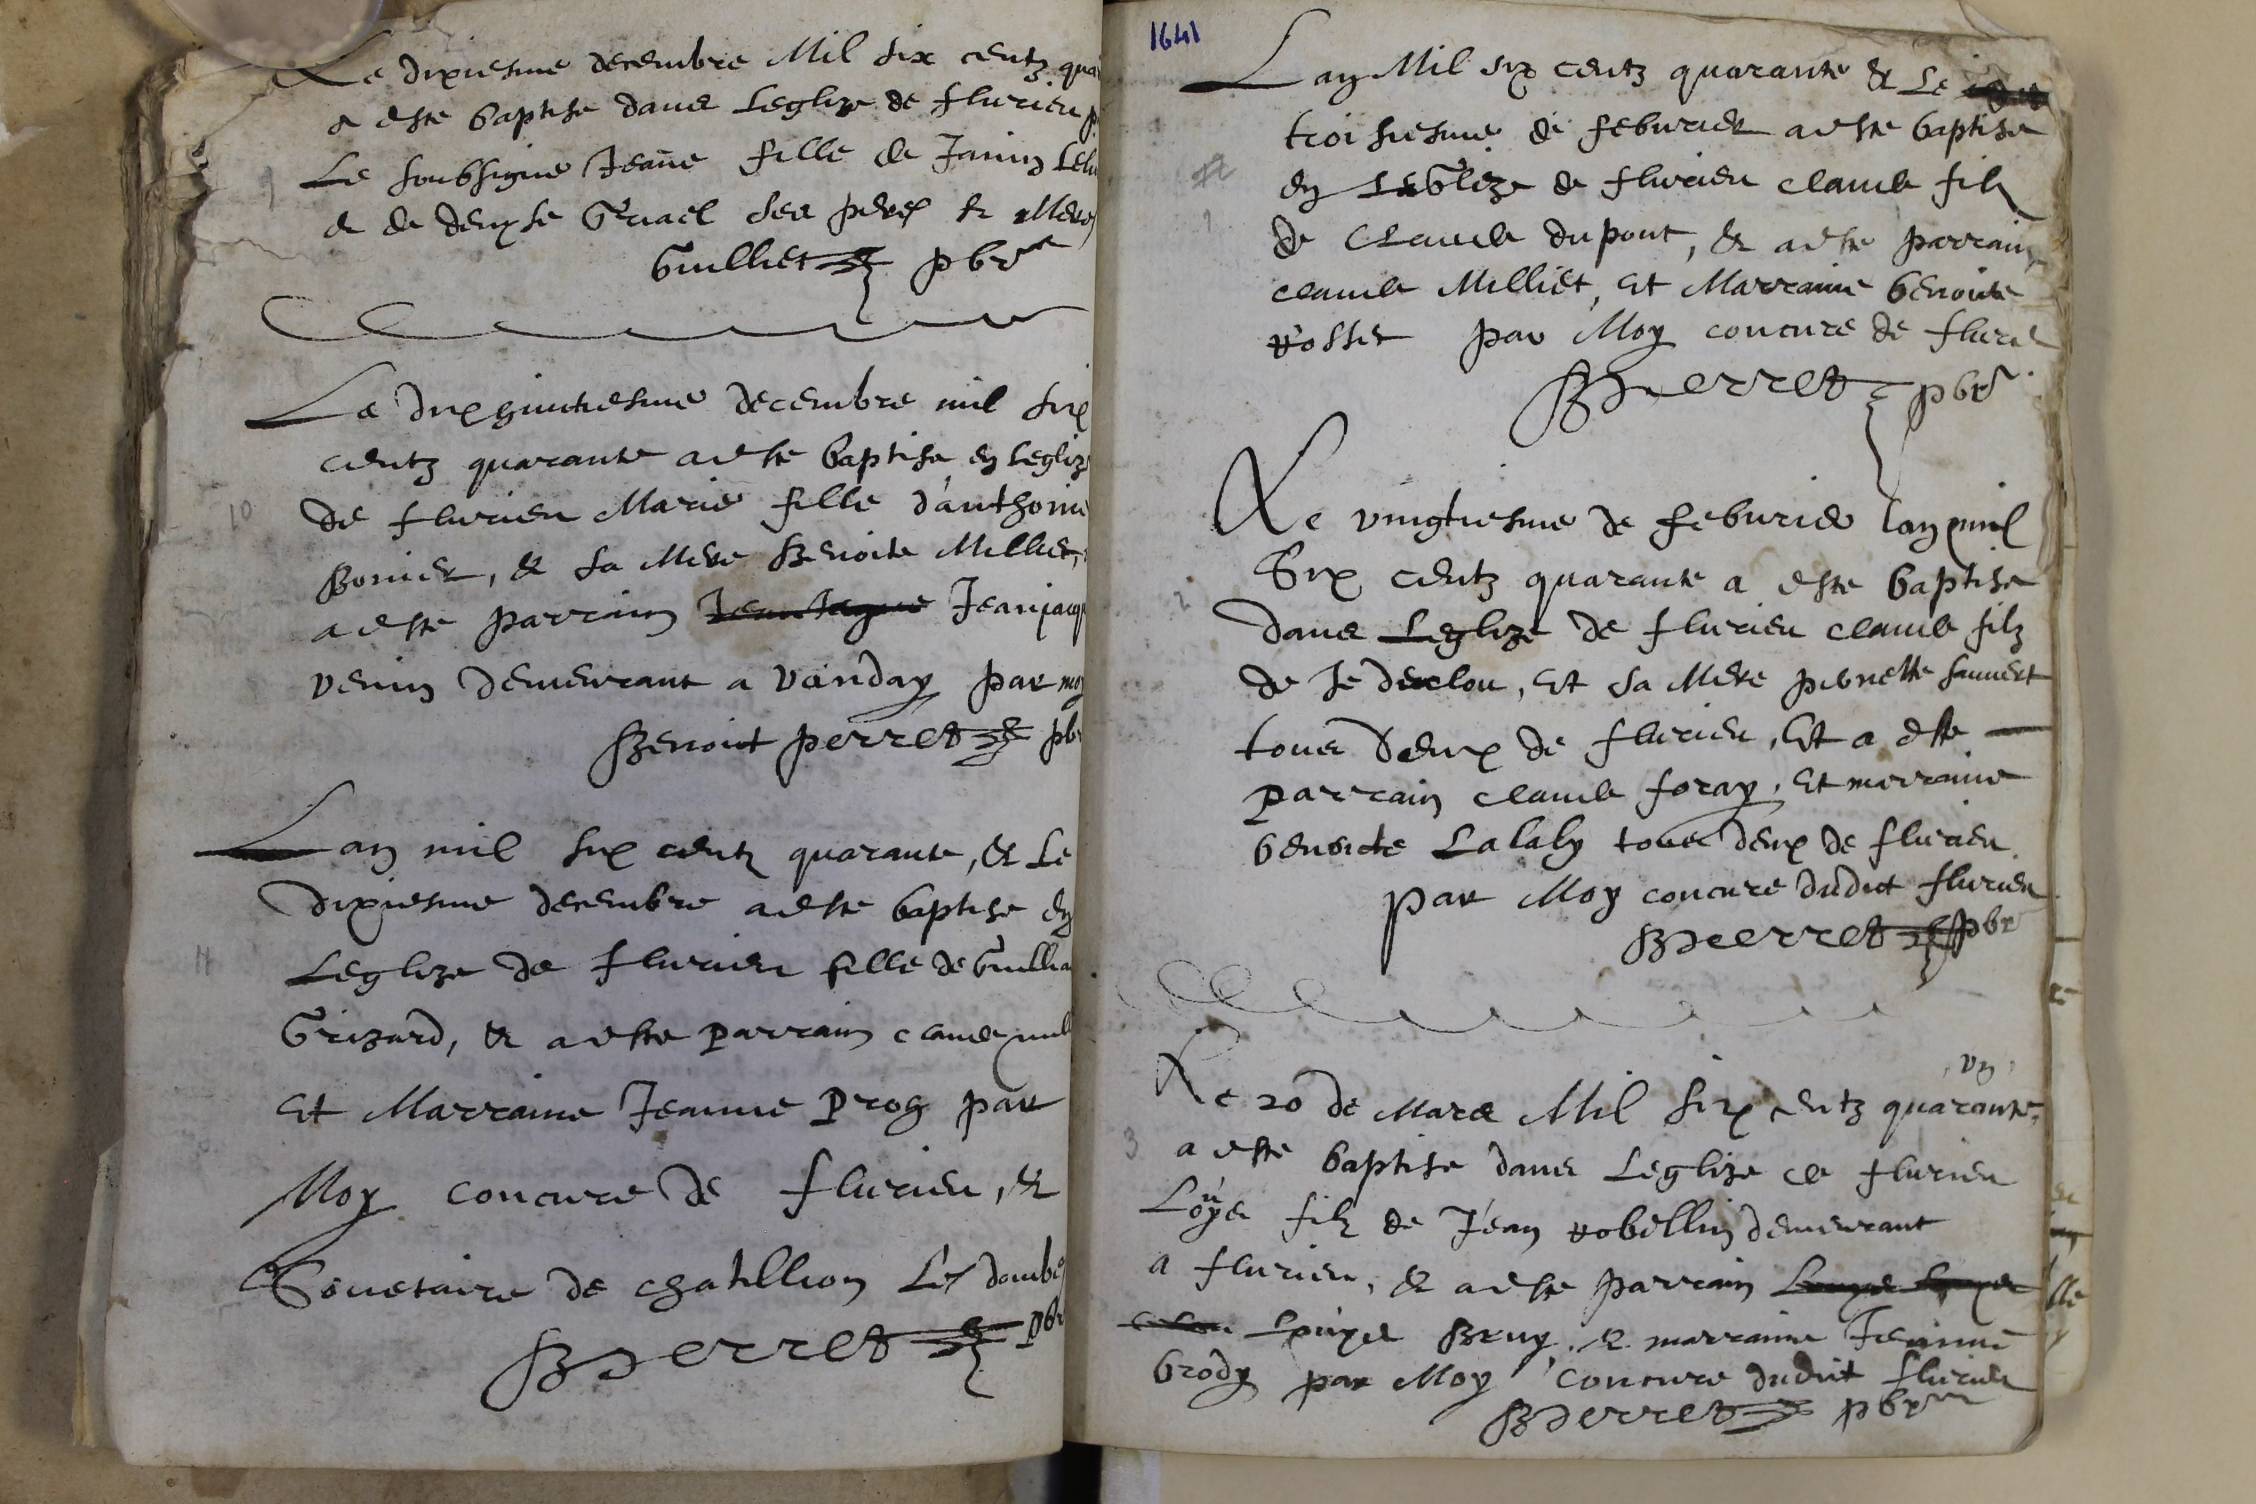 Le dixiesme decembre Mil six centz qua
a este baptise dans Leglize de flurieu p
9
Le soubsigne Jeane fille de Janin
& de denyse Gruael ses peres & Meres
Guilliet pbre
Le dixhuictiesme decembre mil six
centz quarante a este baptise en leglize
10
de flurieu Marie fille d'anthoine
Bonier, & sa Mere Benoite Milliet,
a este parrain Jeanjacq
venin demeurant a Vanday par moy
Benoict perret pbr
Lan mil six centz quarante, & Le
dixiesme decembre a este baptise en
11
Leglize de flurieu fille de Guillia
Grizard, & a este parrain claude mill
Et Marraine Jeanne Prog par
Moy concure de flurieu, &
Societaire de chatillion Les dombes
BPerret pbr
1641
Lan Mil six centz quarante & Le
troisiesme de feburier a este baptise
en LeGlize de flurieu claude filz
1
de Claude dupont, & a este parrain
claude Milliet, Et Marraine benoite
rosset par Moy concure de flurie
BPerret pbr
Le vingtiesme de feburier lan mil
Six centz quarante a este baptise
2
dans Leglize de flurieu claude filz
de Je declou, Et sa Mere pernette sauvert
tous deux de flurieu, Et a este
parrain claude foray, Et marraine
benoicte Lalaly tous deux de flurieu
par Moy concure dudict flurieu
BPerret pbr
un
Le 20 de Mars Mil six centz quarante
3
a este baptise dans Leglise de flurieu
Louys filz de Jean robellin demeurant
a flurieu, & a este parrain
Louyes Bruy, & marraine Jeanne
brody par Moy concure dudict flurieu
BPerret pbre